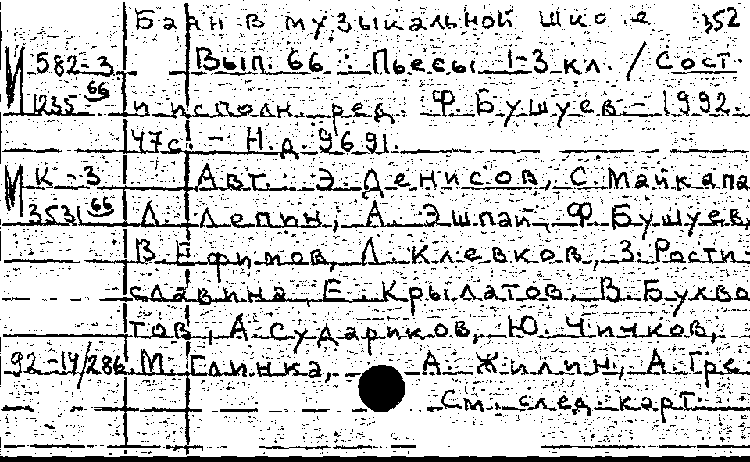 Баян в музыкальной школе 352
И 582-3 Вып. 66 : Пьесы 1-3 кл. / Сост.
1235 66 и исполн. ред. Ф. Бушуев. - 1992. -
47 с. - Н.д. 9691.
И К-3 Авт.: Э. Денисов, С. Майкапа
3531 66 Л. Лепин, А. Эшпай, Ф. Бушуев,
В. Ефимов, Л. Клевков, З. Рости-
славина, Е. Крылатов, В. Бухво
тов, А. Судариков, Ю. Чичков,
92-14/286 М. Глинка, А. Жилин, А. Гре
См. след. карт.